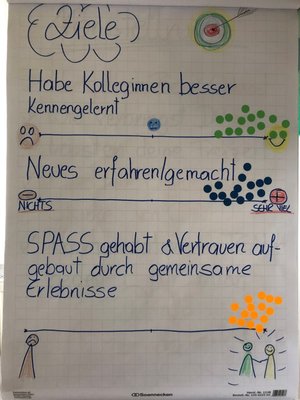 Ziele
Habe Kolleginnen besser
kennengelernt
Neues erfahren/gemacht
NICHTS
SEHR VIEL
SPASS gehabt & Vertrauen auf-
gebaut durch gemeinsame
Erlebnisse
Soennecken